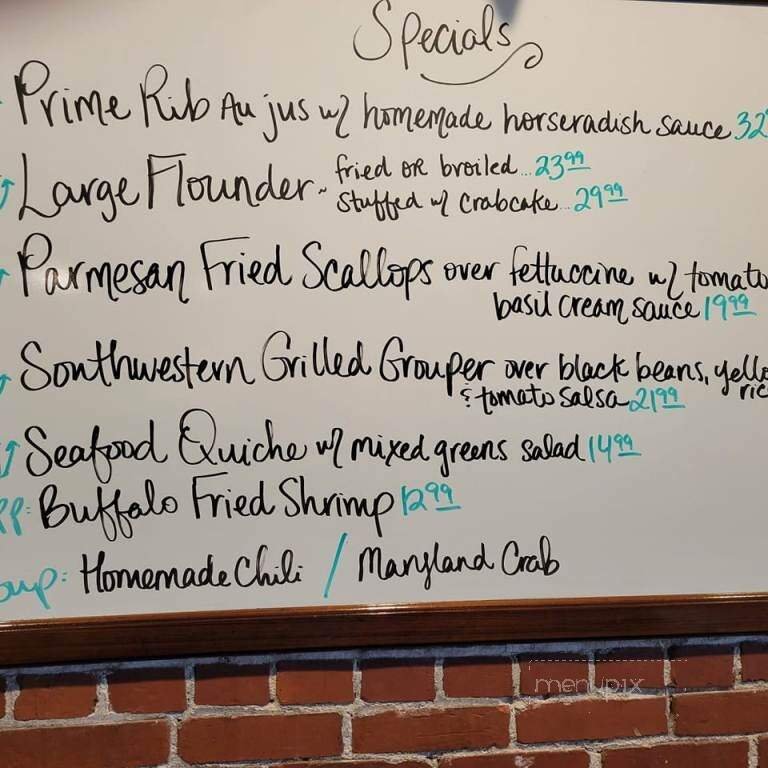 Specials
Prime Rib Au jus w/ homemade horseradish sauce 32
Large Flounder ~ fried or broiled... 23.99
stuffed w/ crabcake... 29.99
Parmesan Fried Scallops over fettuccine w/ tomato
basil cream sauce 19.99
Southwestern Grilled Grouper over black beans, yello
ric
& tomato salsa 21.99
Seafood Quiche w/ mixed greens salad 14.99
PP: Buffalo Fried Shrimp 12.99
oup: Homemade Chili / Maryland Crab
menupix